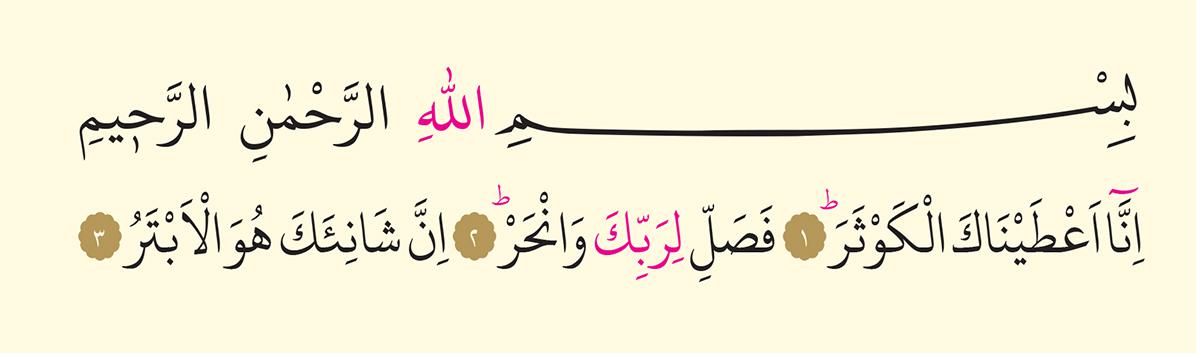 بِسْمِ اللّٰهِ الرَّحْمٰنِ الرَّح۪يمِ
اِنَّٓا اَعْطَيْنَاكَ الْكَوْثَرَۜ ﴿١﴾ فَصَلِّ لِرَبِّكَ وَانْحَرْۜ ﴿٢﴾ اِنَّ شَانِئَكَ هُوَ الْاَبْتَرُ ﴿٣﴾